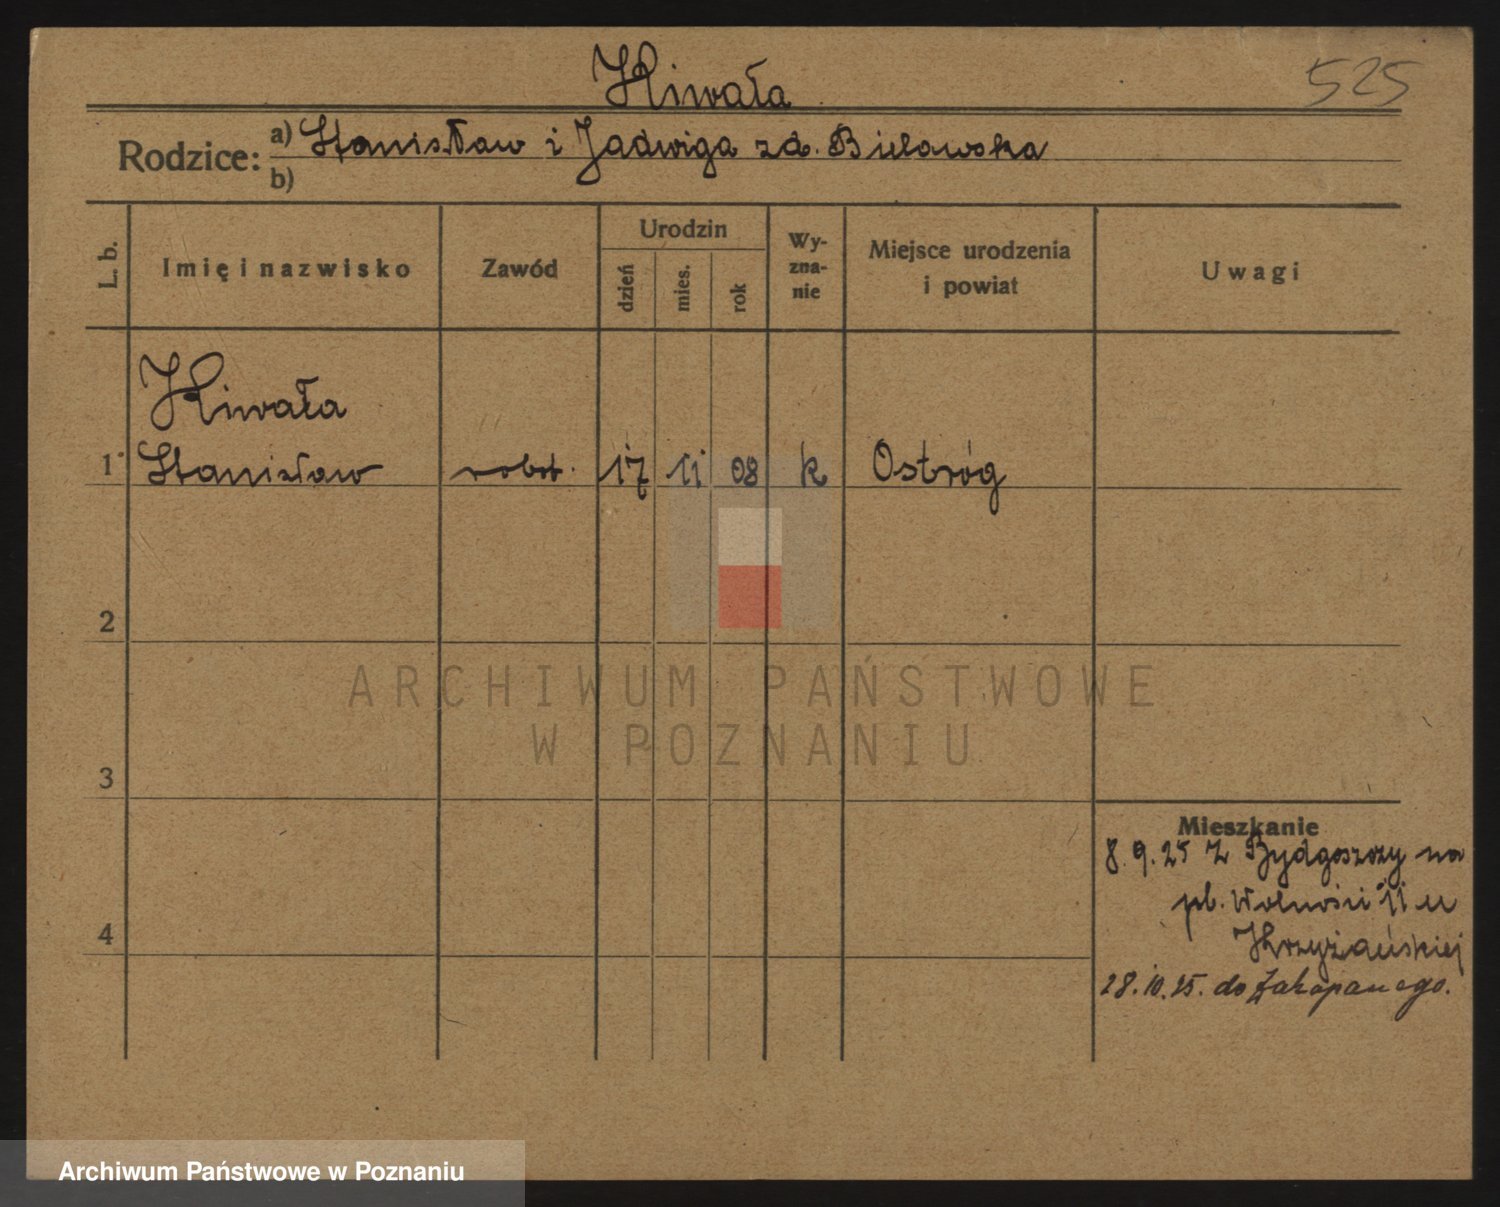 Kiwała
525
Rodzice: a) Stanisław i Jadwiga zd. Bielawska
b)
L. b.
Imię i nazwisko
Zawód
Urodzin
dzień
mies.
rok
Wy-
zna-
nie
Miejsce urodzenia
i powiat
Uwagi
Kiwała
1 Stanisław robot. 17 11 08 k Ostróg
2
ARCHIWUM PAŃSTWOWE
W POZNANIU
3
Mieszkanie
8.9.25 z Bydgoszczy na
pl. Wolności 11 u
4
Krzyżańskiej
28.10.25. do Zakopanego.
Archiwum Państwowe w Poznaniu